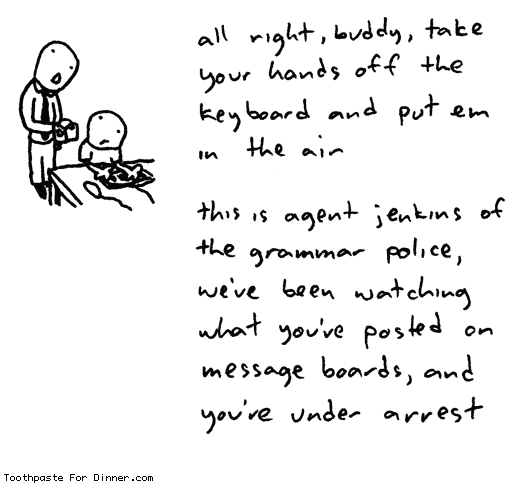 all right, buddy, take
your hands off the
keyboard and put em
in the air
this is agent jenkins of
the grammar police,
we've been watching
what you've posted on
message boards, and
you're under arrest
Toothpaste For Dinner.com